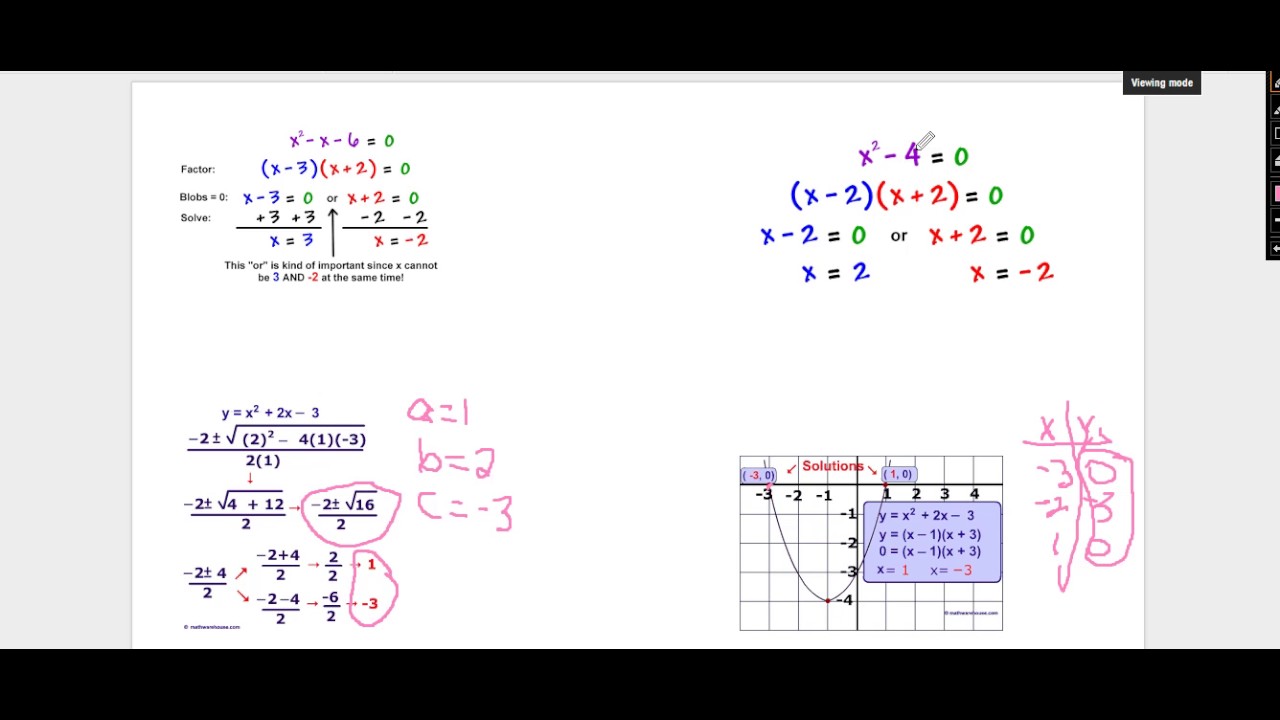 Viewing mode
x² - x - 6 = 0
Factor: (x - 3)(x + 2) = 0
Blobs = 0: x - 3 = 0 or x + 2 = 0
Solve: +3 +3 -2 -2
x = 3 x = -2
This "or" is kind of important since x cannot
be 3 AND -2 at the same time!
x² - 4 = 0
(x - 2)(x + 2) = 0
x - 2 = 0 or x + 2 = 0
x = 2 x = -2
y = x² + 2x – 3
-2 ± √(2)² – 4(1)(-3)
2(1)
↓
-2± √4 + 12 → -2± √16
2 2
-2± 4
2
↗ -2+4 → 2 → 1
2 2
↘ -2-4 → -6 → -3
2 2
© mathwarehouse.com
a=1
b=2
c=-3
Solutions
(-3, 0) (1, 0)
-3 -2 -1 1 2 3 4
-1
-2
-3
-4
y = x² + 2x – 3
y = (x – 1)(x + 3)
0 = (x – 1)(x + 3)
x= 1 x= –3
© mathwarehouse.com
x y
-3 0
-2 -3
1 0